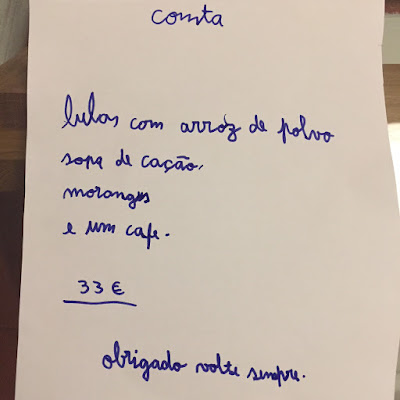 conta
lulas com arroz de polvo
sopa de cação,
morangos
e um cafe.
33 €
obrigado volte sempre.